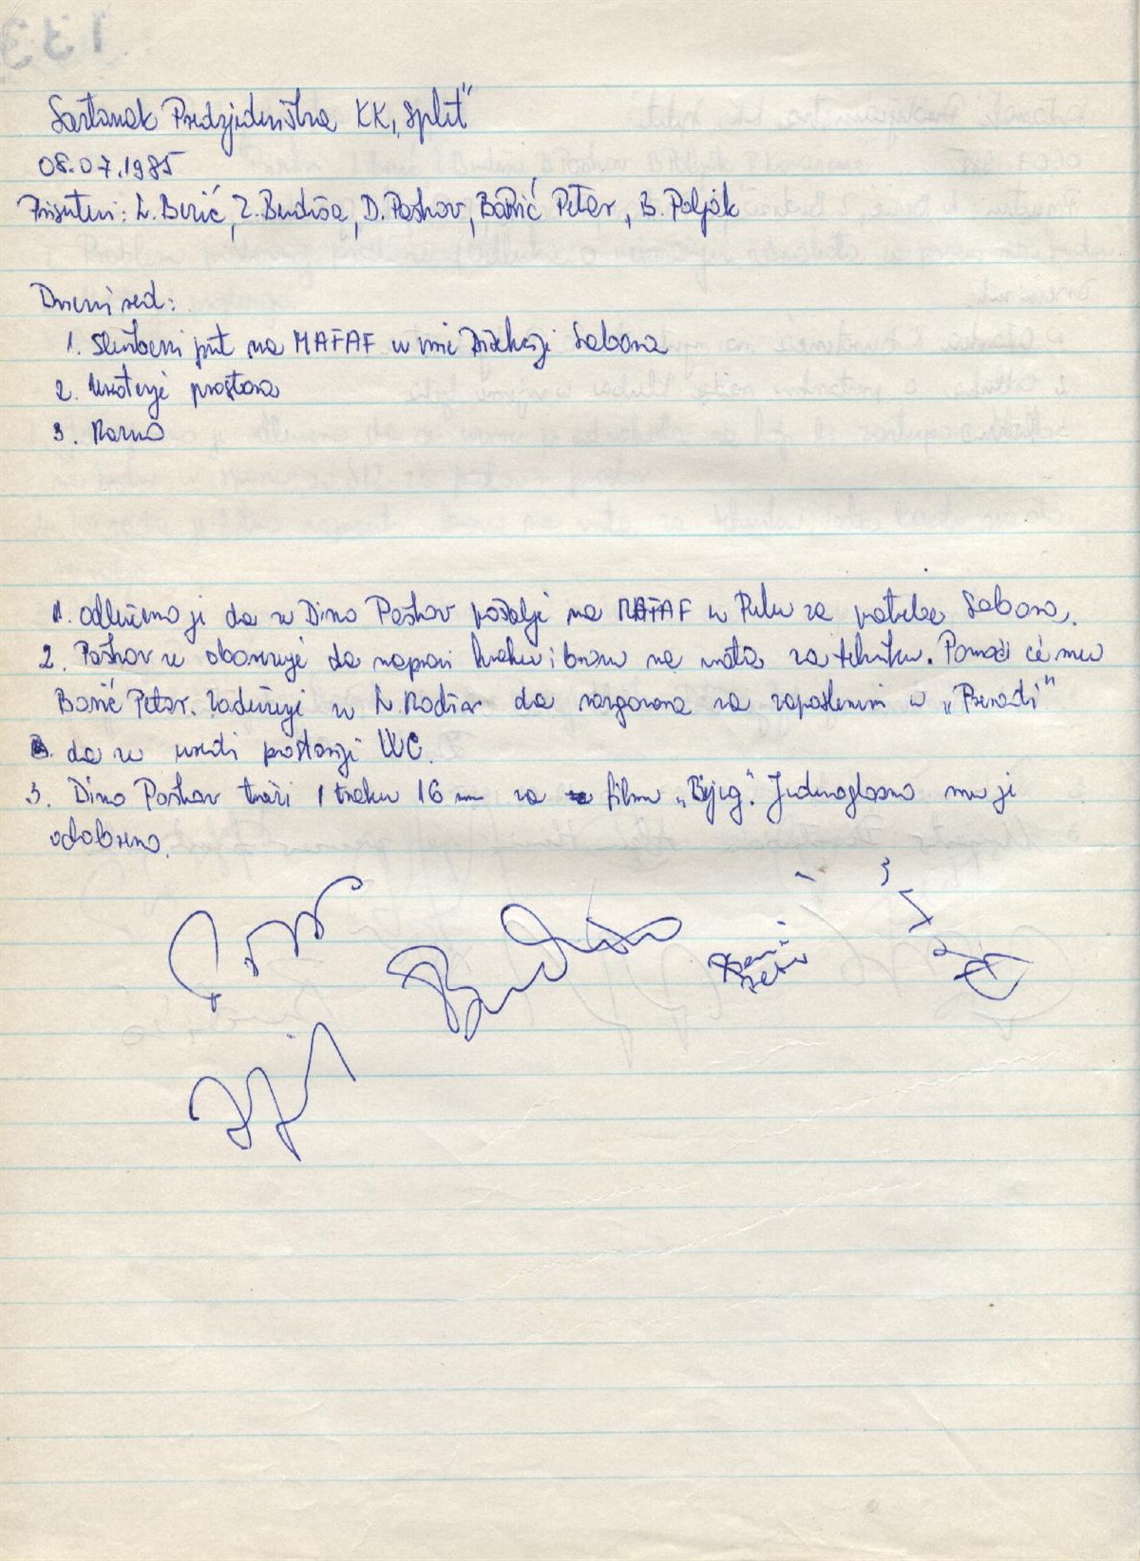 Sastanak Predsjedništva KK "Split"
08.07.1985
Prisutni: L. Berić, Z. Budiša, D. Poshov, Barić Petar, B. Poljak
Dnevni red:
1. Službeni put na MAFAF u ime Sabora
2. Uređenje prostora
3. Razno
1. odlučeno je da se Dino Poshov pošalje na MAFAF u Pulu za potrebe Sabora.
2. Poshov se obavezuje da napravi kvaku i bravu na vrata za tehniku. Pomoći će mu
Barić Petar. Zadužuje se da razgovara sa zaposlenim u "Preradi"
da se uredi prostorije WC.
3. Dino Poshov traži 1 traku 16 mm za film "Bijeg". Jednoglasno mu je
odobreno.